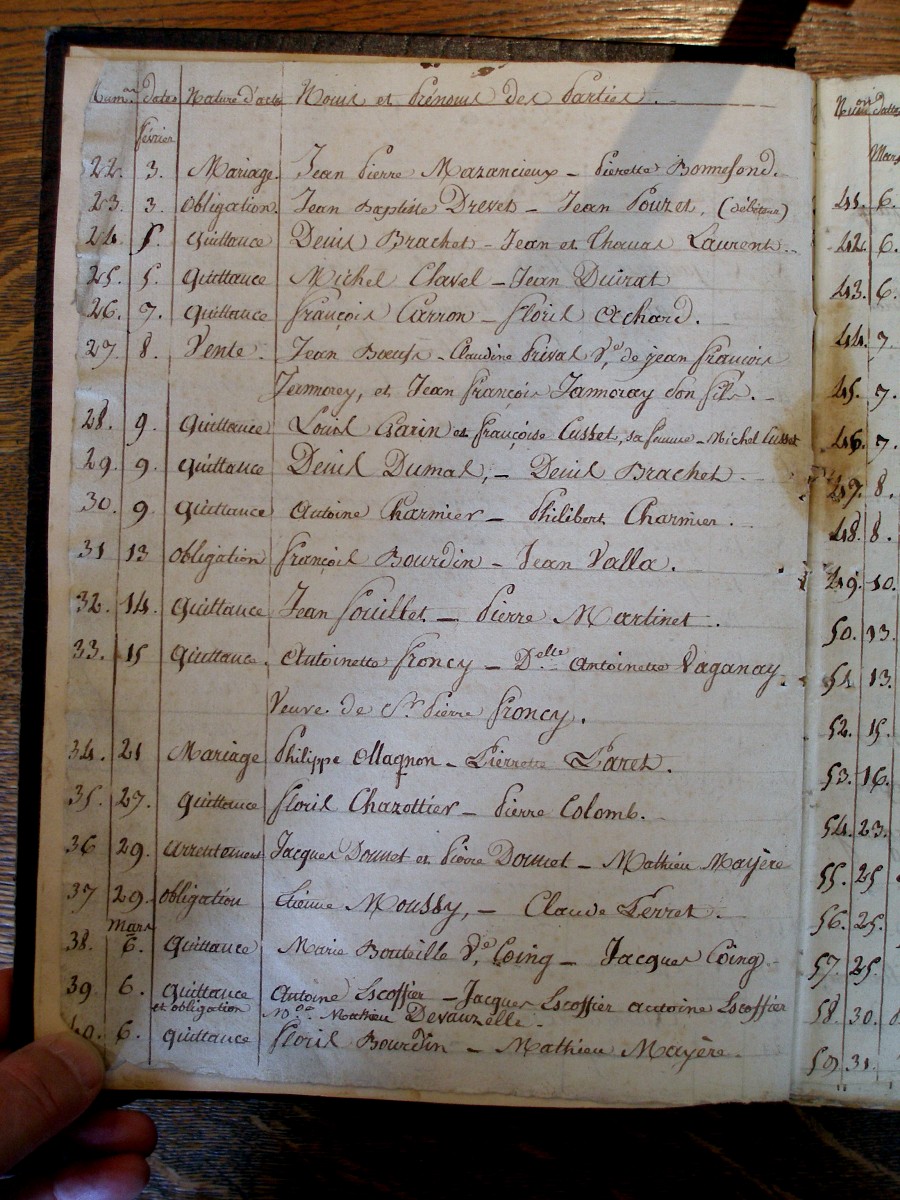 Num.on dates Nature d'acte Noms et Prénoms des Parties.
février
22. 3. Mariage. Jean Pierre Mazancieux - Pierette Bonnefond.
23. 3. Obligation. Jean Baptiste Drevet - Jean Pouzet, (débiteur)
24. 5. Quittance Denis Brachet - Jean et Thomas Laurent.
25. 5. Quittance Michel Clavel - Jean Duirat
26. 7. Quittance François Carron - Floris Achard.
27 8. Vente. Jean Bœuf - Claudine Prival Ve. de jean François
Jammorey, et Jean François Jammoray son fils.
28. 9. Quittance Louis Charin et Françoise Cusset, sa femme - Michel Cusset
29. 9. Quittance Denis Dumas, - Denis Brachet -
30. 9 Quittance Antoine Charmier - Philibert Charmier.
31 13 Obligation François Bourdin - Jean Valla.
32. 14. Quittance Jean Pouillet - Pierre Martinet.
33. 15 Quittance. Antoinette Froncy - Delle Antoinette Vaganay
Veuve de Sr. Pierre Froncy.
34. 21 Mariage Philippe Ollagnon - Pierrette Paret.
35. 27. Quittance Floris Chazottier - Pierre Colomb.
36 29. Arrentement Jacques Doumet et Pierre Doumet - Mathieu Mayère
37 29. Obligation Etienne Moussy, - Claude Perret.
Mars
38. 6. Quittance Marie Bouteille Ve. Coing - Jacques Coing.
39 6. Quittance Antoine Escoffier - Jacques Escoffier Antoine Escoffier
et obligation Mathieu Devauzelle.
40. 6. Quittance Floris Bourdin - Mathieu Mayère.
Mars
41. 6.
42. 6.
43. 6.
44. 7.
45. 7.
46. 7.
47. 8.
48. 8.
49. 10.
50. 13.
51 13.
52. 15.
53. 16.
54. 23.
55. 25
56. 25.
57. 25.
58. 30.
59. 31.